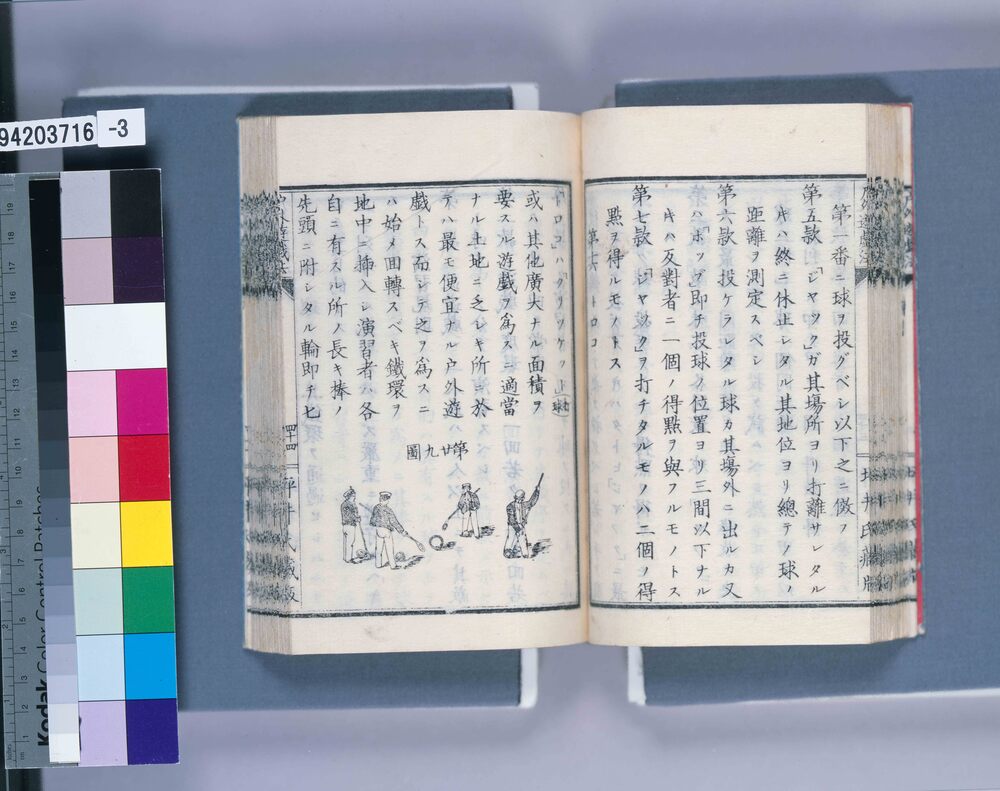 第一番ニ球ヲ投グベシ以下之ニ倣フ
第五款 「ジヤック」ガ其場所ヨリ打離サレタル
キハ終ニ休止シタル其地位ヨリ總テノ球ノ
距離ヲ測定スベシ
第六款 投ゲラレタル球カ其場外ニ出ルカ又
ハ「ホップ」即チ投球ノ位置ヨリ三間以下ナル
キハ反對者ニ一個ノ得點ヲ與フルモノトス
第七款 「ジヤック」ヲ打チタルモノハ二個ノ得
點ヲ得ルモノトス
第十六 トロコ
トロコハ「クリッケット」
或ハ其他廣大ナル面積ヲ
要スル遊戯ヲ爲スニ適當
ナル土地ニ乏シキ所ニ於
テハ最モ便宜ナル户外遊
戯トス而シテ之ヲ爲スニ
ハ始メ回轉スベキ鐵環ヲ
地中ニ挿入シ演習者ハ各
自ニ有スル所ノ長キ棒ノ
先頭ニ附シタル輪即チ匕
第廿九圖
四十四
坪井氏藏版
坪井氏藏版
94203716 -3
Kodak Color Control Patches